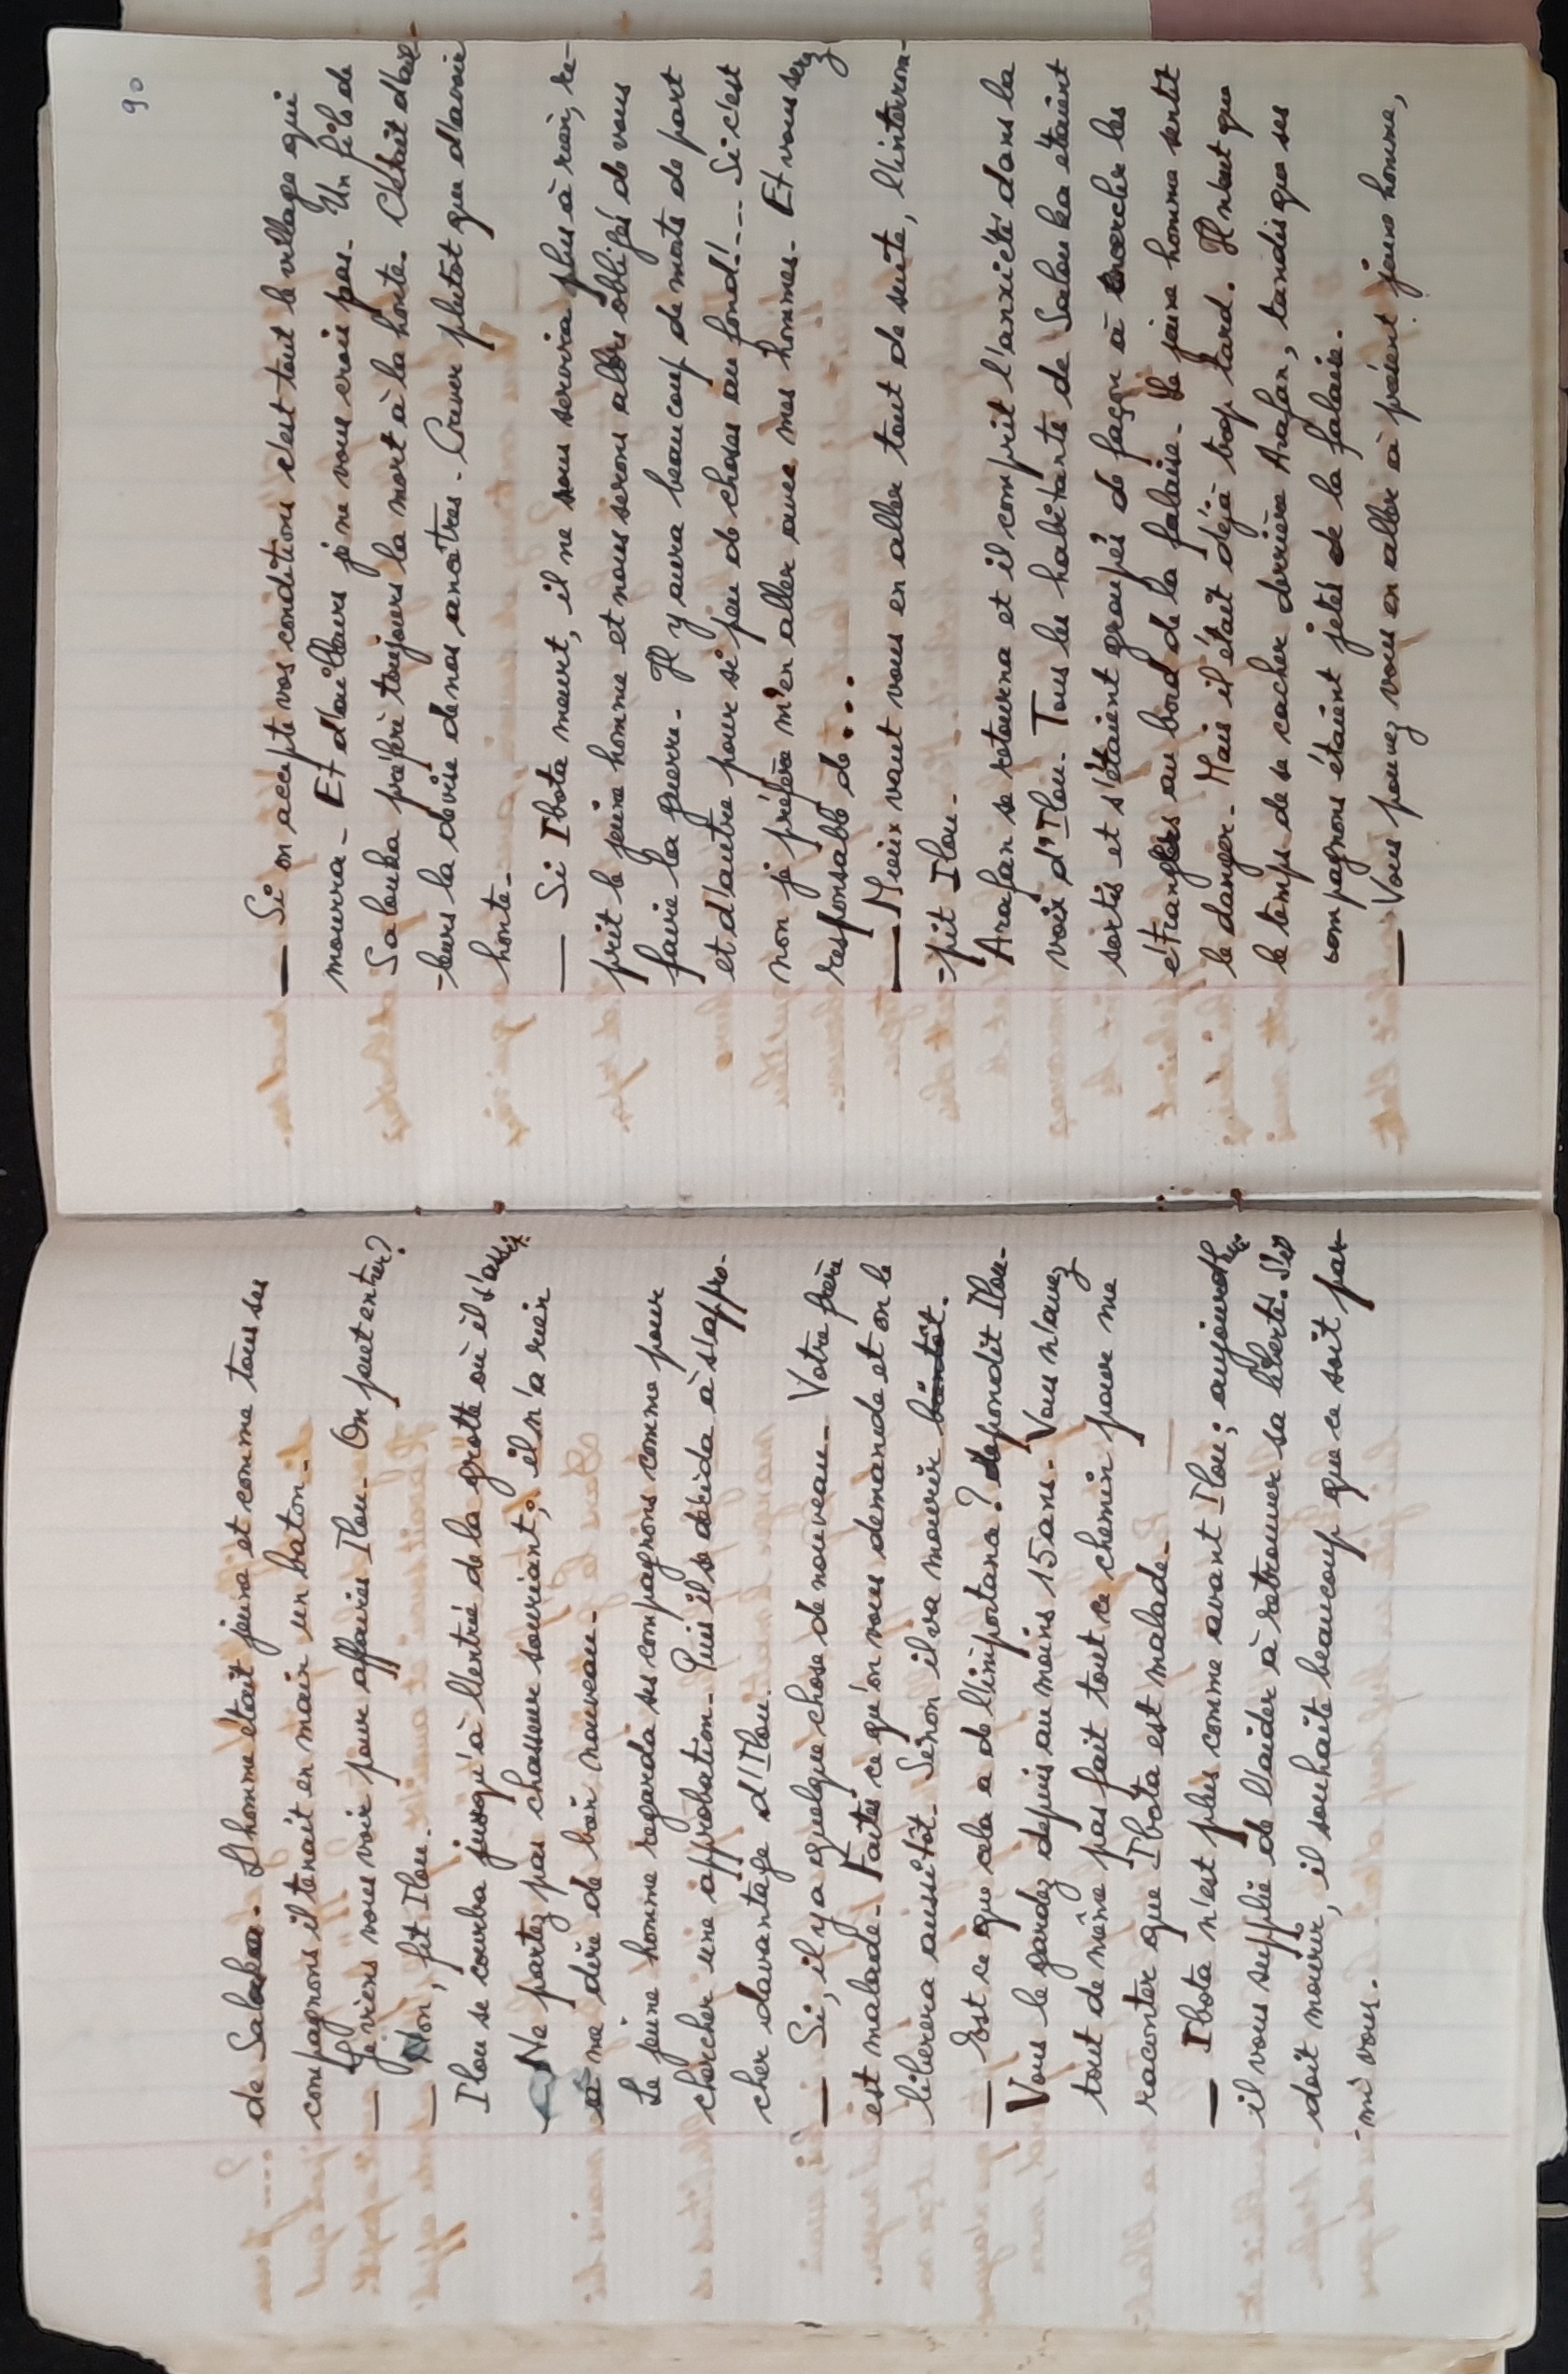 de Salouka. L'homme était jeune et comme tous ses
compagnons il tenait en main un baton.
— Je viens vous voir pour affaires Ilou. On peut entrer?
— Non, fit Ilou.
Ilou se courba jusqu'à l'entrée de la grotte où il s'assit.
— Ne partez pas chasseur souriant; il n'a rien
à me dire de bon nouveau.
Le jeune homme regarda ses compagnons comme pour
chercher une approbation. Puis il se décida à s'appro-
cher davantage d'Ilou.
— Si, il y a quelque chose de nouveau. Votre frère
est malade. Faites ce qu'on vous demande et on le
libérera aussitôt. Sinon il va mourir bientôt.
— Est ce que cela a de l'importance? répondit Ilou.
Vous le gardez depuis au moins 15 ans. Vous n'avez
tout de même pas fait tout ce chemin pour me
raconter que Ibota est malade.
— Ibota n'est plus comme avant Ilou; aujourd'hui
il vous supplie de l'aider à retrouver sa liberté. S'il
doit mourir, il souhaite beaucoup que ce soit par-
-mi vous.
90
— Si on accepte vos conditions c'est tout le village qui
mourra. Et d'ailleurs je ne vous crois pas. Un fils de
Salouka préfère toujours la mort à la honte. C'était d'ail-
-leurs la devise de nos ancêtres. Crever plutôt que d'avoir
honte.
— Si Ibota meurt, il ne vous servira plus à rien, re-
prit le jeune homme et nous serons alors obligés de vous
faire la guerre. Il y aura beaucoup de morts de part
et d'autre pour si peu de choses au fond!... Si c'est
non je préfère m'en aller avec mes hommes. Et vous serez
responsable de...
— Mieux vaut vous en aller tout de suite, l'interrom-
-pit Ilou.
Arafan se retourna et il comprit l'anxiété dans la
voix d'Ilou. Tous les habitants de Salouka étaient
sortis et s'étaient groupés de façon à encercler les
étrangers au bord de la falaise. Le jeune homme sentit
le danger. Mais il était déjà trop tard. Il n'eut que
le temps de se cacher derrière Arafan, tandis que ses
compagnons étaient jetés de la falaise.
— Vous pouvez vous en aller à présent jeune homme,